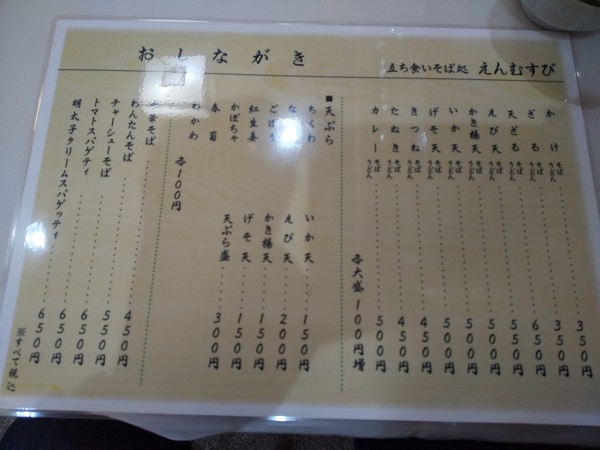 おしながき
立ち食いそば処 えんむすび
かけ そば うどん 350円
ざる そば うどん 350円
天ざる そば うどん 650円
えび天 そば うどん 550円
かき揚天 そば うどん 500円
いか天 そば うどん 500円
げそ天 そば うどん 500円
きつね そば うどん 450円
たぬき そば うどん 450円
カレー そば うどん 500円
各大盛100円増
■天ぷら
ちくわ
ごぼう
紅生姜
かぼちゃ
春菊
わかめ
各100円
いか天 150円
えび天 200円
かき揚天 150円
げそ天 150円
天ぷら盛 300円
華そば 450円
わんたんそば 550円
チャーシューそば 650円
トマトスパゲティ 650円
明太子クリームスパゲッティ 650円
※すべて税込